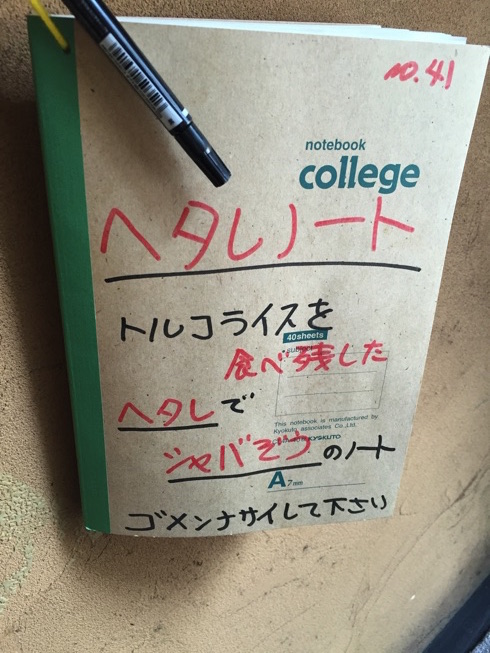 no.41
notebook
college
ヘタレノート
トルコライスを
40sheets
食べ残した
ヘタレで
This notebook is manufactured by
Kyokuto associates Co.,Ltd.
KYOKUTO
シャバぞうのノート
A 7mm
ゴメンナサイして下さい